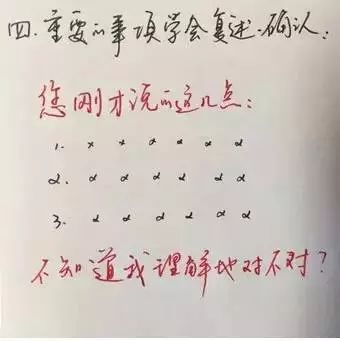 四.重要的事项学会复述、确认：
您刚才说的这几点：
1. x x x x x x
2. α α α α α α
3. α α α α α α
不知道我理解地对不对？